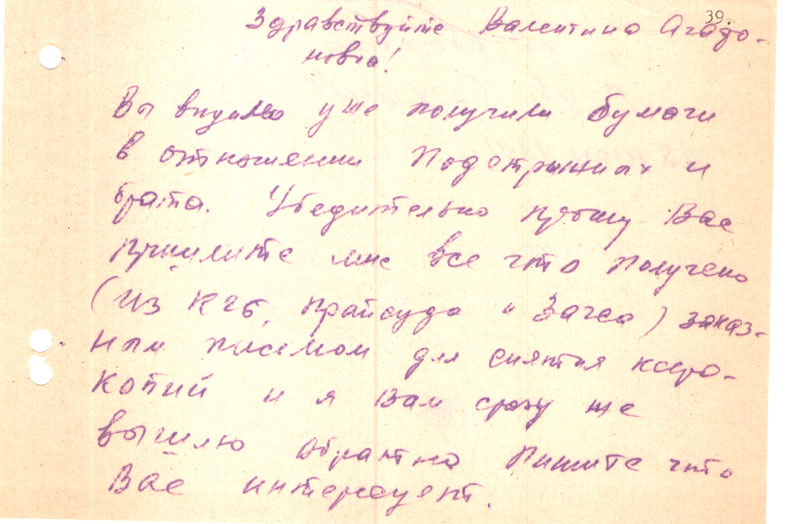 39.
Здравствуйте Валентина Агафо-
новна!
Вы видимо уже получили бумаги
в отношении Подстрынных и
брата. Убедительно прошу Вас
пришлите мне все что получено
(из КГБ, Крайсуда и Загса) заказ-
ным письмом для снятия ксеро-
копий и я Вам сразу же
вышлю обратно Пишите что
Вас интересует.